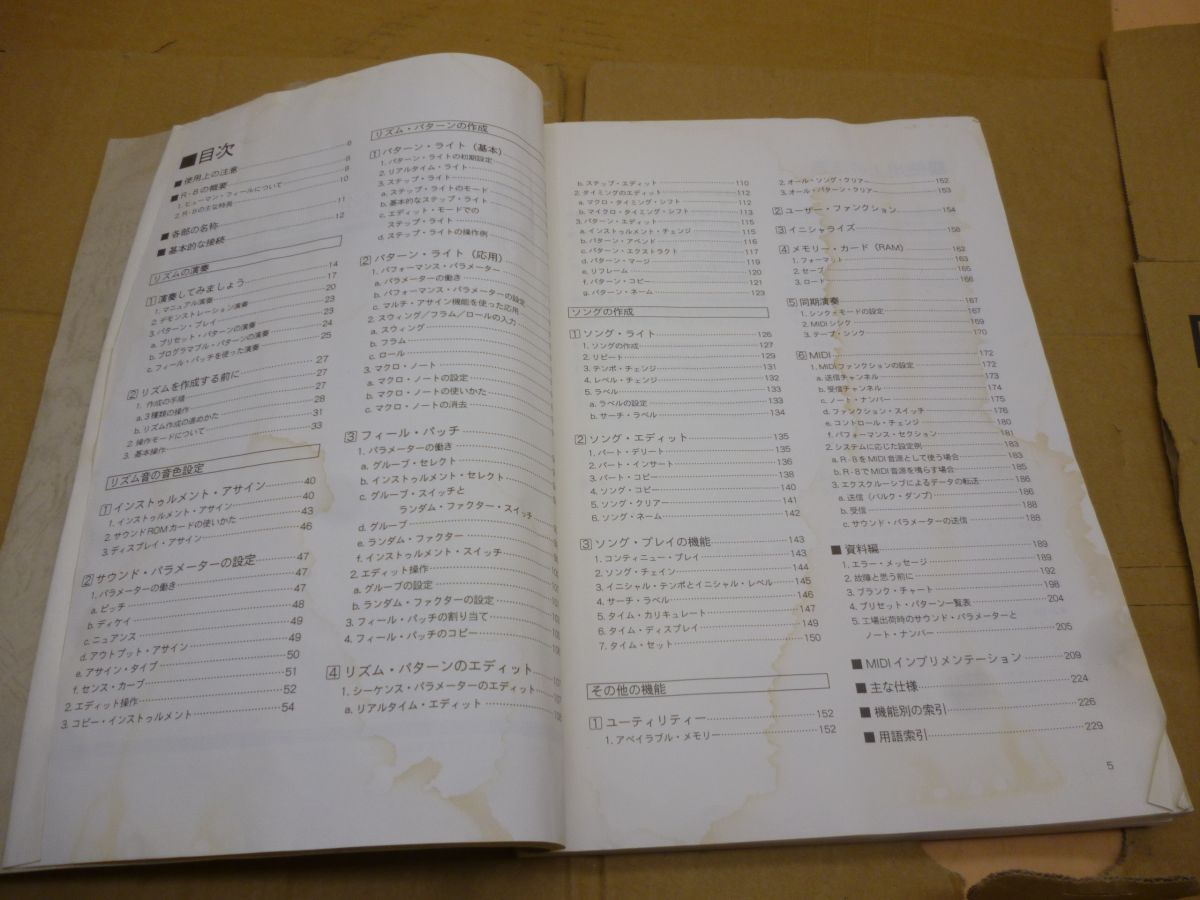 ■目次
■使用上の注意 6
■R-8の概要 8
1. ヒューマン・フィールについて 8
2. R-8の主な特長 10
■各部の名称 11
■基本的な接続 12
リズムの演奏
1 演奏してみましょう 14
1. マニュアル演奏 17
2. デモンストレーション演奏 20
3. パターン・プレイ 23
a. プリセット・パターンの演奏 23
b. プログラマブル・パターンの演奏 24
c. フィール・パッチを使った演奏 25
2 リズムを作成する前に 27
1. 作成の手順 27
a. 3種類の操作 27
b. リズム作成の進めかた 28
2. 操作モードについて 31
3. 基本操作 33
リズム音の音色設定
1 インストゥルメント・アサイン 40
1. インストゥルメント・アサイン 40
2. サウンドROMカードの使いかた 43
3. ディスプレイ・アサイン 46
2 サウンド・パラメーターの設定 47
1. パラメーターの働き 47
a. ピッチ 47
b. ディケイ 48
c. ニュアンス 49
d. アウトプット・アサイン 49
e. アサイン・タイプ 50
f. センス・カーブ 51
2. エディット操作 52
3. コピー・インストゥルメント 54
リズム・パターンの作成
1 パターン・ライト（基本）
1. パターン・ライトの初期設定
2. リアルタイム・ライト
3. ステップ・ライト
a. ステップ・ライトのモード
b. 基本的なステップ・ライト
c. エディット・モードでの
ステップ・ライト
d. ステップ・ライトの操作例
2 パターン・ライト（応用）
1. パフォーマンス・パラメーター
a. パラメーターの働き
b. パフォーマンス・パラメーターの設定
c. マルチ・アサイン機能を使った応用
2. スウィング／フラム／ロールの入力
a. スウィング
b. フラム
c. ロール
3. マクロ・ノート
a. マクロ・ノートの設定
b. マクロ・ノートの使いかた
c. マクロ・ノートの消去
3 フィール・パッチ
1. パラメーターの働き
a. グループ・セレクト
b. インストゥルメント・セレクト
c. グループ・スイッチと
ランダム・ファクター・スイッチ
d. グループ
e. ランダム・ファクター
f. インストゥルメント・スイッチ
2. エディット操作
a. グループの設定
b. ランダム・ファクターの設定
3. フィール・パッチの割り当て
4. フィール・パッチのコピー
4 リズム・パターンのエディット
1. シーケンス・パラメーターのエディット
a. リアルタイム・エディット
b. ステップ・エディット 110
2. タイミングのエディット 112
a. マクロ・タイミング・シフト 112
b. マイクロ・タイミング・シフト 113
3. パターン・エディット 115
a. インストゥルメント・チェンジ 115
b. パターン・アペンド 116
c. パターン・エクストラクト 117
d. パターン・マージ 119
e. リフレーム 120
f. パターン・コピー 121
g. パターン・ネーム 123
ソングの作成
1 ソング・ライト 126
1. ソングの作成 127
2. リピート 129
3. テンポ・チェンジ 131
4. レベル・チェンジ 132
5. ラベル 133
a. ラベルの設定 133
b. サーチ・ラベル 134
2 ソング・エディット 135
1. パート・デリート 135
2. パート・インサート 136
3. パート・コピー 138
4. ソング・コピー 140
5. ソング・クリア 141
6. ソング・ネーム 142
3 ソング・プレイの機能 143
1. コンティニュー・プレイ 143
2. ソング・チェイン 144
3. イニシャル・テンポとイニシャル・レベル 145
4. サーチ・ラベル 146
5. タイム・カリキュレート 147
6. タイム・ディスプレイ 149
7. タイム・セット 150
その他の機能
1 ユーティリティー 152
1. アベイラブル・メモリー 152
2. オール・ソング・クリアー 152
3. オール・パターン・クリアー 153
2 ユーザー・ファンクション 154
3 イニシャライズ 158
4 メモリー・カード（RAM） 162
1. フォーマット 163
2. セーブ 165
3. ロード 166
5 同期演奏 167
1. シンク・モードの設定 167
2. MIDIシンク 169
3. テープ・シンク 170
6 MIDI 172
1. MIDIファンクションの設定 172
a. 送信チャンネル 173
b. 受信チャンネル 174
c. ノート・ナンバー 175
d. ファンクション・スイッチ 176
e. コントロール・チェンジ 180
f. パフォーマンス・セクション 181
2. システムに応じた設定例 183
a. R-8をMIDI音源として使う場合 183
b. R-8でMIDI音源を鳴らす場合 185
3. エクスクルーシブによるデータの転送 186
a. 送信（バルク・ダンプ） 186
b. 受信 188
c. サウンド・パラメーターの送信 188
■資料編 189
1. エラー・メッセージ 189
2. 故障と思う前に 192
3. ブランク・チャート 198
4. プリセット・パターン一覧表 204
5. 工場出荷時のサウンド・パラメーターと
ノート・ナンバー 205
■MIDIインプリメンテーション 209
■主な仕様 224
■機能別の索引 226
■用語索引 229
5